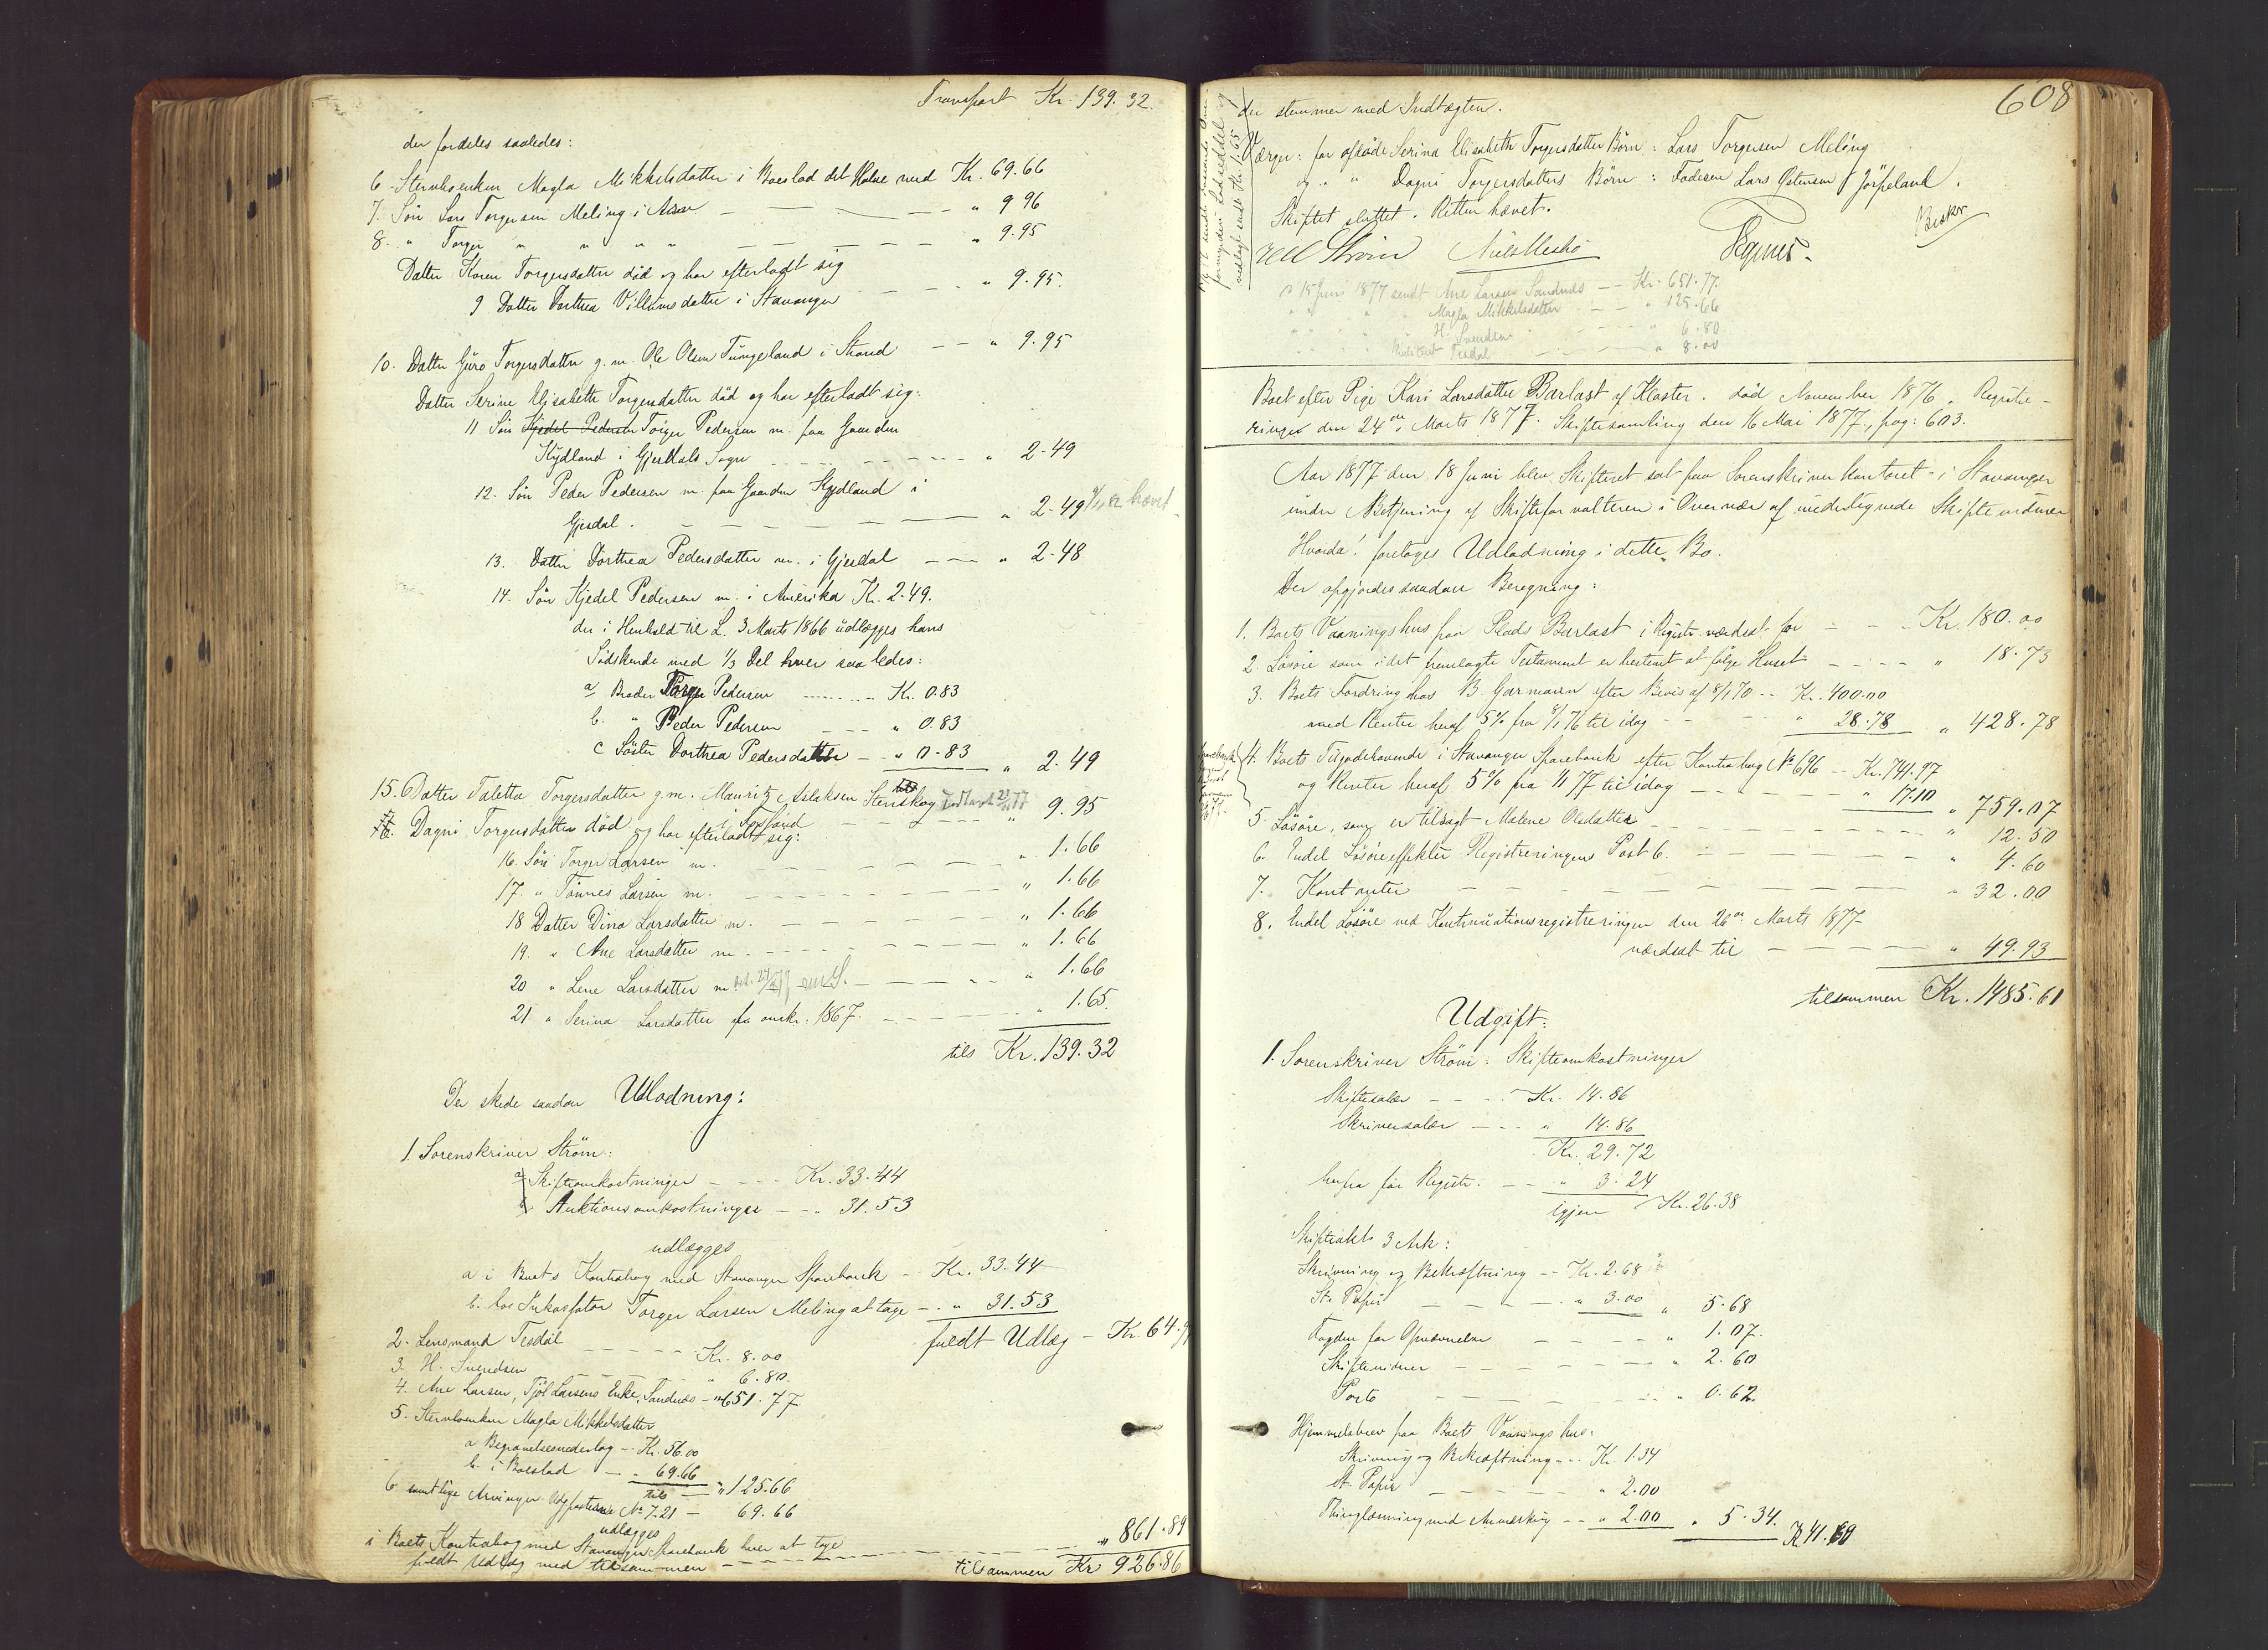 Transport Kr. 139.32.
der fordeles saaledes:
6. Sterboenken Magla Mikkelsdatter i Boeslod det Halve med Kr. 69.66
7. Søn Lars Torgersen Meling i — — — " 9 96
8. " Torger " " " " — — — " 9.95
Datter Karen Torgersdatter död og har efterladt sig
9 Datter Dorthea Villumsdatter i Stavanger — — " 9.95.
10. Datter Guro Torgersdatter g.m. Ole Olsen Tungeland i Strand — — " 9.95
Datter Serine Elisabeth Torgersdatter död og har efterladt sig:
11 Søn Kjedel Pedersen Torger Pedersen m. paa Gaarden
Kydland i Gjesdals Sogn — — — " 2-49
12. Søn Peder Pedersen m. paa Gaarden Kydland i
Gjesdal. — — — " 2-49 hævet
13. Datter Dorthea Pedersdatter m. i Gjesdal — — " 2-48
14. Søn Kjedel Pedersen m. i Amerika Kr. 2.49.
der i Henhold til L. 3 Marts 1866 udlægges hans
Södskende med 1/3 Del hver saaledes:
a Broder Torger Pedersen — Kr. 0.83
b. " Peder Pedersen — " 0.83
c Söster Dorthea Pedersdatter — " 0-83 " 2.49
15. Datter Taletta Torgersdatter g.m. Mauritz Aslaksen Stenskog " 9.95
Dagni Torgersdatter död og har efterladt sig:
16. Søn Torger Larsen m. — — " 1.66
17. " Tönnes Larsen m. — — " 1.66
18 Datter Dina Larsdatter m. — — " 1.66
19. " Ane Larsdatter m. — — " 1.66
20 " Lene Larsdatter m. — — " 1.66
21 " Serina Larsdatter omkr. 1867. — — " 1.65.
tils Kr. 139.32
Der skede saadan Udlodning:
1. Sorenskriver Ström:
a Skifteomkostninger — — Kr. 33.44
b Auktionsomkostninger — — " 31.53
udlægges
a i Boets Kontrabog med Stavanger Sparebank — Kr. 33.44
b. hos Inkassator Torger Larsen Meling at tage — " 31.53
fuldt Udlæg — Kr. 64.97
2. Lensmand Tesdal — — Kr. 8.00
3. H. Svendsen — — " 6.80.
4. Ane Larsen, Tjöl Larsens Enke, Sandnæs — " 651.77
5. Sterboenken Magla Mikkelsdatter
a Begravelsesvederlag — Kr. 56.00
b. i Boeslod — " 69.66
tils — " 125.66
6 samtlige Arvinger Udgpasterne No 7-21 — 69.66
udlægges
i Boets Kontrabog med Stavanger Sparebank hver at tage
fuldt Udlæg med tilsammen — — " 861.89
tilsammen Kr 926.86
608
der stemmer med Indtægten.
Værger: for afdöde Serina Elisabeth Torgersdatters Börn: Lars Torgersen Meling
og " " Dagni Torgersdatters Börn: Faderen Lars Petersen Jörpeland.
Skiftet sluttet. Retten hævet.
Ström Niels Meshø Tegner. Beskr
15 Juni 1877 sendt Ane Larsen Sandnæs — Kr. 651.77.
Magla Mikkelsdatter — " 125.66
H. Svendsen — " 6.80
Tesdal — " 8.00
Boet efter Pige Kari Larsdatter Barlast af Kloster. död November 1876. Registre-
ringer den 24de Marts 1877. Skiftesamling den 16 Mai 1877, pag: 603.
Aar 1877 den 18 Juni blev Skifteret sat paa Sorenskriverkontoret i Stavanger
under Betjening af Skifteforvalteren i Overvær af undertegnede Skiftevidner
Hvorda! foretoges Udlodning i dette Bo.
Der opgjordes saadan Beregning:
1. Boets Vaaningshus paa Plads Barlast i Registr. værdsat for — — Kr. 180.00
2. Lösöre som i det fremlagte Testament er bestemt at følge Huset — — " 18.73
3. Boets Fordring hos B. Garmann efter Bevis af 8/1 70 — Kr. 400.00
med Renter heraf 5% fra 8/1 76 til idag — " 28.78 " 428.78
4. Boets Tilgodehavende i Stavanger Sparebank efter Kontrabog No 696 — Kr. 741.97
og Renter heraf 5% fra 1/1 77 til idag — " 17.10 " 759.07
5. Lösöre, som er tillagt Malene Olsdatter — " 12.50
6. Endel Lösöreeffekter Registreringens Post 6. — " 4.60
7. Kontanter — — " 32.00
8. Endel Lösöre ved Kontinuationsregistreringen den 26de Marts 1877
værdsat til — — " 49.93
tilsammen Kr. 1485.61
Udgift:
1. Sorenskriver Ström: Skifteomkostninger
Skiftesalær — — Kr. 14.86
Skriversalær — — " 14.86
Kr. 29.72
herfra for Registr. — — " 3.24
igjen Kr. 26.38
Skifteakt 3 Ark:
Skrivning og Bekræftning — Kr. 2.68
St. Papir — — " 3.00 " 5.68
Fogden for Opnævnelse — — " 1.07.
Skiftevidner — — " 2.60
Porto — — " 0.62.
Hjemmelsbrev paa Boets Vaaningshus:
Skrivning og Bekræftning — Kr. 1.34
St. Papir — — " 2.00
Thinglæsning med Anmærkning — " 2.00 " 5.34. Kr 41.69